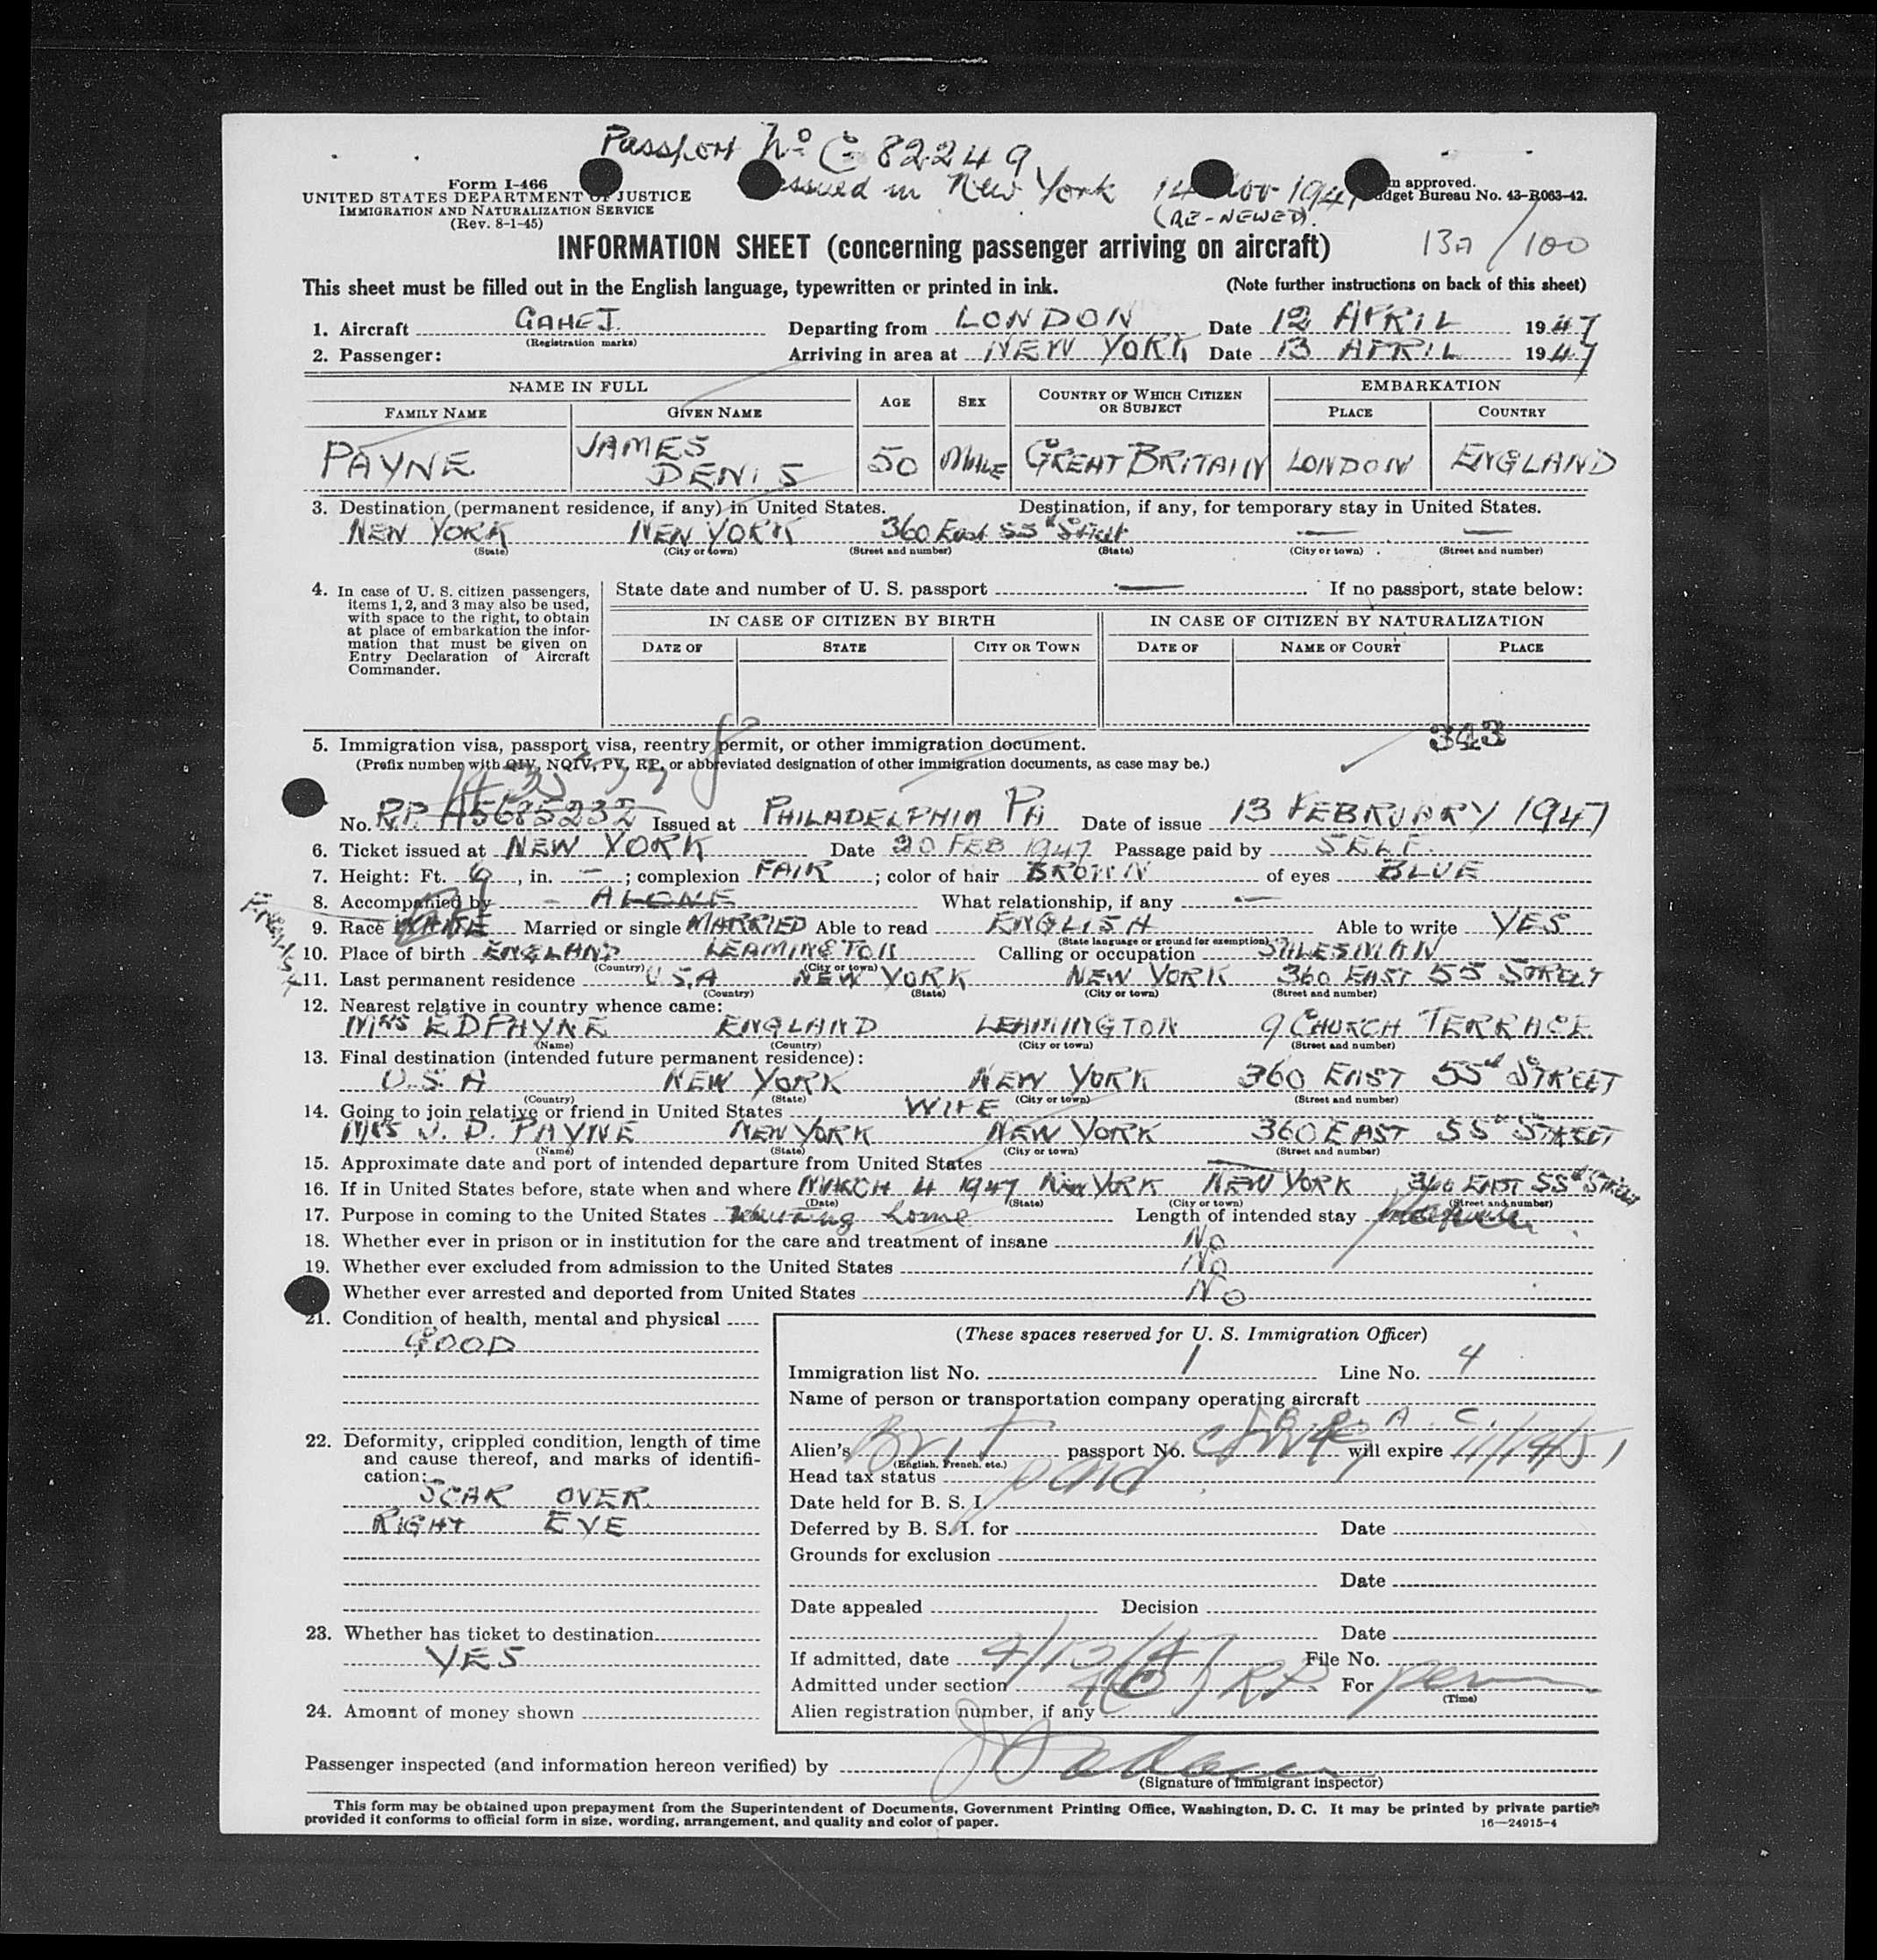 Passport No C 82249
issued in New York 14 Nov 194
(RE-NEWED).
Form I-466
UNITED STATES DEPARTMENT OF JUSTICE
IMMIGRATION AND NATURALIZATION SERVICE
(Rev. 8-1-45)
m approved.
dget Bureau No. 43-R063-42.
INFORMATION SHEET (concerning passenger arriving on aircraft)
13A/100
This sheet must be filled out in the English language, typewritten or printed in ink. (Note further instructions on back of this sheet)
1. Aircraft GAHEJ Departing from LONDON Date 12 APRIL 1947
(Registration marks)
2. Passenger: Arriving in area at NEW YORK Date 13 APRIL 1947
NAME IN FULL AGE SEX COUNTRY OF WHICH CITIZEN OR SUBJECT EMBARKATION
FAMILY NAME GIVEN NAME PLACE COUNTRY
PAYNE JAMES DENIS 50 MALE GREAT BRITAIN LONDON ENGLAND
3. Destination (permanent residence, if any) in United States. Destination, if any, for temporary stay in United States.
NEW YORK NEW YORK 360 East 55th Street — —
(State) (City or town) (Street and number) (State) (City or town) (Street and number)
4. In case of U. S. citizen passengers,
items 1, 2, and 3 may also be used,
with space to the right, to obtain
at place of embarkation the infor-
mation that must be given on
Entry Declaration of Aircraft
Commander.
State date and number of U. S. passport — If no passport, state below:
IN CASE OF CITIZEN BY BIRTH IN CASE OF CITIZEN BY NATURALIZATION
DATE OF STATE CITY OR TOWN DATE OF NAME OF COURT PLACE
343
5. Immigration visa, passport visa, reentry permit, or other immigration document.
(Prefix number with QIV, NQIV, PV, RP, or abbreviated designation of other immigration documents, as case may be.)
No. R.P. A5685232 Issued at PHILADELPHIA PA Date of issue 13 FEBRUARY 1947
6. Ticket issued at NEW YORK Date 20 FEB 1947 Passage paid by SELF.
7. Height: Ft. 6, in. —; complexion FAIR; color of hair BROWN of eyes BLUE
8. Accompanied by - ALONE What relationship, if any —
English
9. Race WHITE Married or single MARRIED Able to read ENGLISH Able to write YES
(State language or ground for exemption)
10. Place of birth ENGLAND LEAMINGTON Calling or occupation SALESMAN
(Country) (City or town)
11. Last permanent residence U.S.A NEW YORK NEW YORK 360 EAST 55 STREET
(Country) (State) (City or town) (Street and number)
12. Nearest relative in country whence came:
MRS E D PAYNE ENGLAND LEAMINGTON 9 CHURCH TERRACE
(Name) (Country) (City or town) (Street and number)
13. Final destination (intended future permanent residence):
U.S.A NEW YORK NEW YORK 360 EAST 55th STREET
(Country) (State) (City or town) (Street and number)
14. Going to join relative or friend in United States WIFE
MRS J. D. PAYNE NEW YORK NEW YORK 360 EAST 55th STREET
(Name) (State) (City or town) (Street and number)
15. Approximate date and port of intended departure from United States —
16. If in United States before, state when and where MARCH 4 1947 New YORK NEW YORK 360 EAST 55th Street
(Date) (State) (City or town) (Street and number)
17. Purpose in coming to the United States returning home Length of intended stay
18. Whether ever in prison or in institution for the care and treatment of insane No
19. Whether ever excluded from admission to the United States No
Whether ever arrested and deported from United States No
21. Condition of health, mental and physical
GOOD
22. Deformity, crippled condition, length of time
and cause thereof, and marks of identifi-
cation:
SCAR OVER
RIGHT EYE
23. Whether has ticket to destination
YES
24. Amount of money shown
(These spaces reserved for U. S. Immigration Officer)
Immigration list No. 1 Line No. 4
Name of person or transportation company operating aircraft
B. O. A. C.
Alien's Brit passport No. will expire 11/14/51
(English, French, etc.)
Head tax status paid
Date held for B. S. I.
Deferred by B. S. I. for Date
Grounds for exclusion
Date
Date appealed Decision
Date
If admitted, date 4/13/47 File No.
Admitted under section 4(b) RP For perm
(Time)
Alien registration number, if any
Passenger inspected (and information hereon verified) by
(Signature of immigrant inspector)
This form may be obtained upon prepayment from the Superintendent of Documents, Government Printing Office, Washington, D. C. It may be printed by private parties
provided it conforms to official form in size, wording, arrangement, and quality and color of paper.
16—24915-4